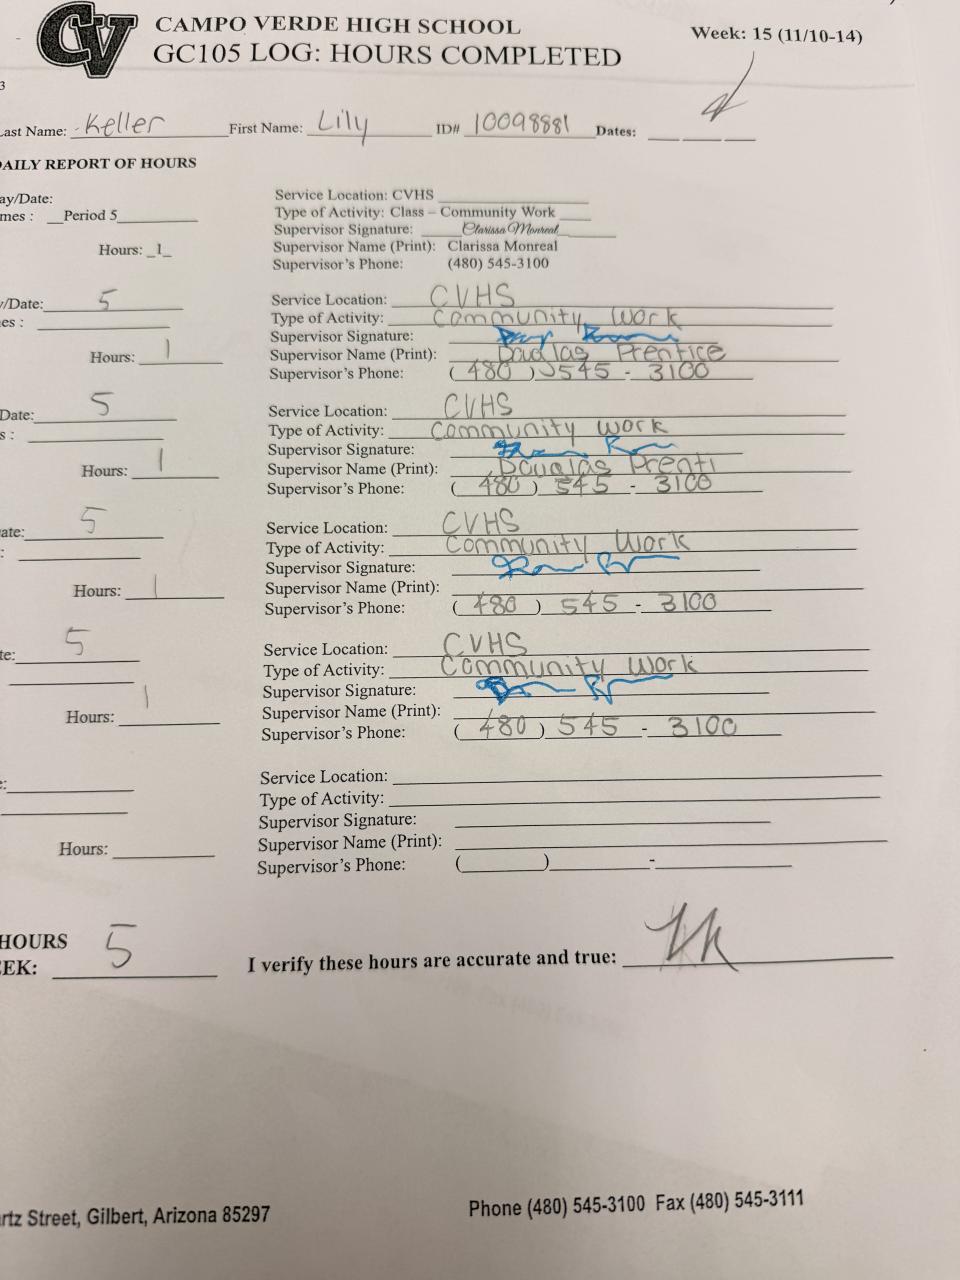 CV
CAMPO VERDE HIGH SCHOOL
GC105 LOG: HOURS COMPLETED
Week: 15 (11/10-14)
3
Last Name: Keller First Name: Lily ID# 10098881 Dates:
DAILY REPORT OF HOURS
ay/Date:
mes : Period 5
Hours: 1
Service Location: CVHS
Type of Activity: Class – Community Work
Supervisor Signature: Clarissa Monreal
Supervisor Name (Print): Clarissa Monreal
Supervisor's Phone: (480) 545-3100
y/Date: 5
es :
Hours: 1
Service Location: CVHS
Type of Activity: Community Work
Supervisor Signature:
Supervisor Name (Print): Douglas Prentice
Supervisor's Phone: (480) 545 - 3100
Date: 5
s :
Hours: 1
Service Location: CVHS
Type of Activity: Community Work
Supervisor Signature:
Supervisor Name (Print): Douglas Prenti
Supervisor's Phone: (480) 545 - 3100
ate: 5
:
Hours: 1
Service Location: CVHS
Type of Activity: Community Work
Supervisor Signature:
Supervisor Name (Print):
Supervisor's Phone: (480) 545 - 3100
te: 5
Hours: 1
Service Location: CVHS
Type of Activity: Community Work
Supervisor Signature:
Supervisor Name (Print):
Supervisor's Phone: (480) 545 - 3100
e:
Hours:
Service Location:
Type of Activity:
Supervisor Signature:
Supervisor Name (Print):
Supervisor's Phone: ( ) -
HOURS
EEK: 5
I verify these hours are accurate and true:
rtz Street, Gilbert, Arizona 85297
Phone (480) 545-3100 Fax (480) 545-3111